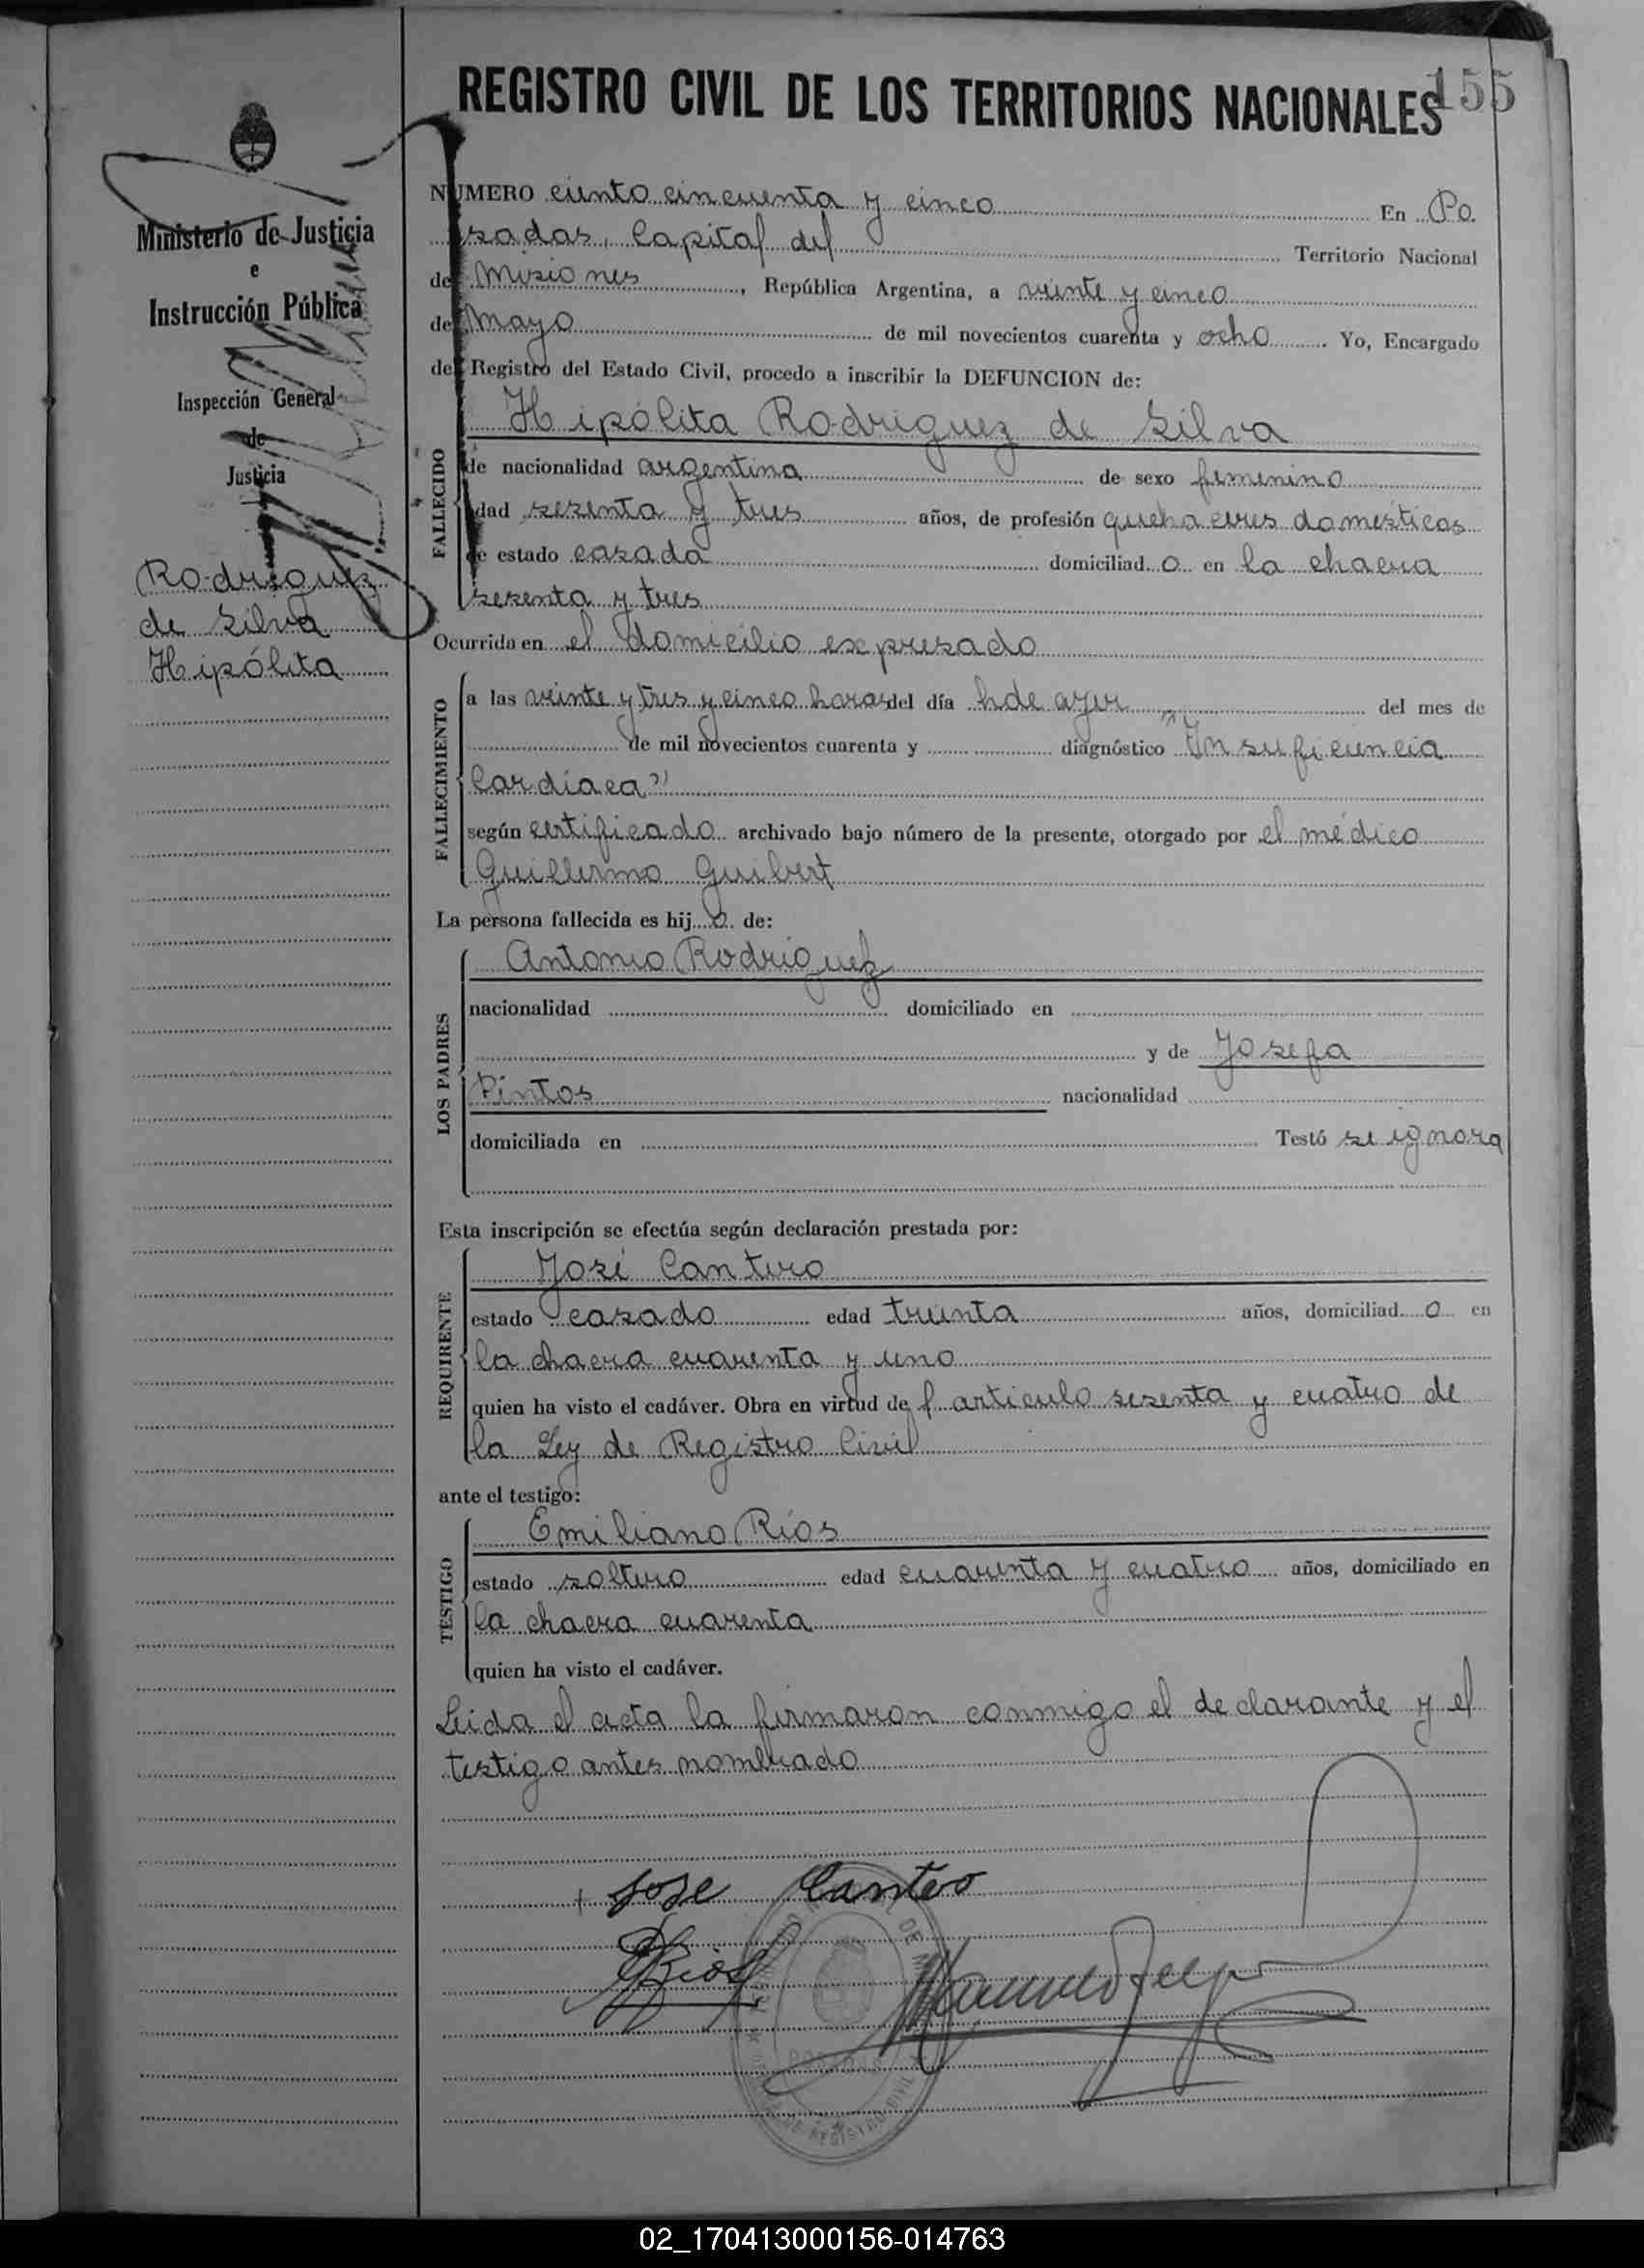 REGISTRO CIVIL DE LOS TERRITORIOS NACIONALES
155
Ministerio de Justicia
e
Instrucción Pública
Inspección General
de
Justicia
Rodriguez
de Silva
Hipólita
NUMERO ciento cincuenta y cinco En Po.
sadas, Capital del Territorio Nacional
de Misiones, República Argentina, a veinte y cinco
de Mayo de mil novecientos cuarenta y ocho Yo, Encargado
del Registro del Estado Civil, procedo a inscribir la DEFUNCION de:
FALLECIDO
Hipólita Rodriguez de Silva
de nacionalidad argentina de sexo femenino
edad sesenta y tres años, de profesión quehaceres domésticos
de estado casada domiciliad o en la chacra
sesenta y tres
Ocurrida en el domicilio expresado
FALLECIMIENTO
a las veinte y tres y cinco horas del día de ayer del mes de
de mil novecientos cuarenta y diagnóstico "Insuficiencia
Cardíaca"
según certificado archivado bajo número de la presente, otorgado por el médico
Guillermo Guibert
La persona fallecida es hij o de:
LOS PADRES
Antonio Rodriguez
nacionalidad domiciliado en
y de Josefa
Pintos nacionalidad
domiciliada en Testó se ignora
Esta inscripción se efectúa según declaración prestada por:
REQUIRENTE
José Cantero
estado casado edad treinta años, domiciliad o en
la chacra cuarenta y uno
quien ha visto el cadáver. Obra en virtud de l artículo sesenta y cuatro de
la Ley de Registro Civil
ante el testigo:
TESTIGO
Emiliano Ríos
estado soltero edad cuarenta y cuatro años, domiciliado en
la chacra cuarenta
quien ha visto el cadáver.
Leida el acta la firmaron conmigo el declarante y el
testigo antes nombrado
+ Jose Cantero
ERios
POSADAS
02_170413000156-014763